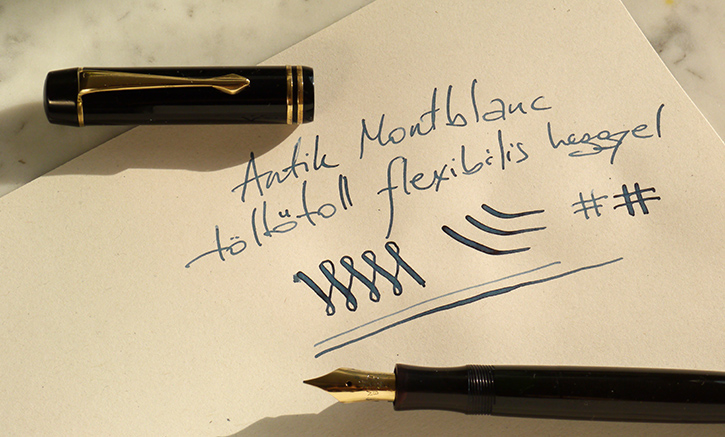 Antik Montblanc
töltőtoll flexibilis heggyel
# #